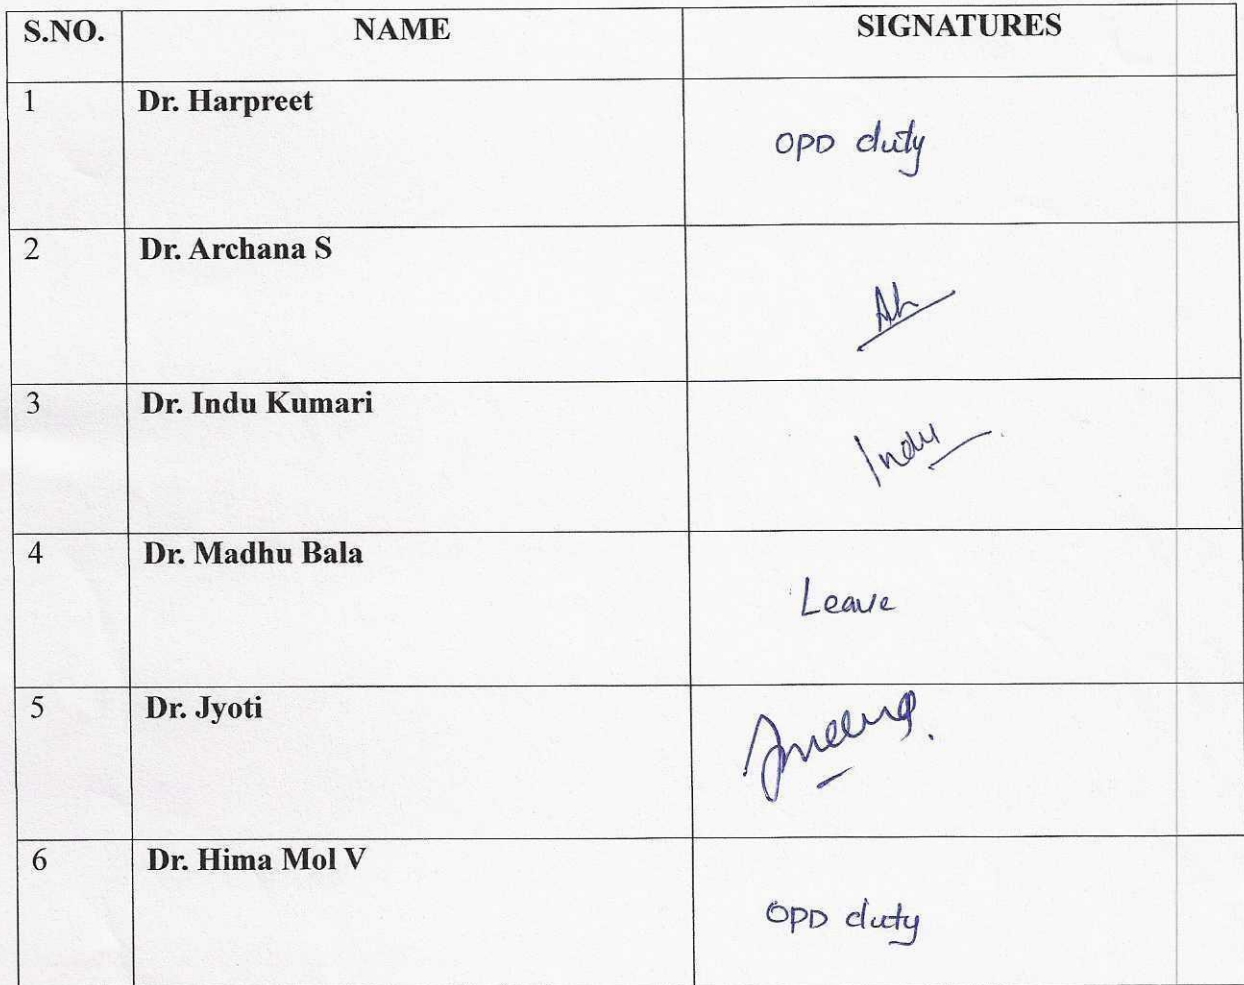 S.NO. NAME SIGNATURES
1 Dr. Harpreet OPD duty
2 Dr. Archana S
3 Dr. Indu Kumari Indu
4 Dr. Madhu Bala Leave
5 Dr. Jyoti
6 Dr. Hima Mol V OPD duty